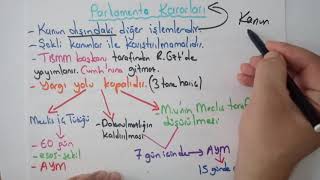 Parlamento Kararları
Kanun
- Kanun dışındaki diğer işlemlerdir.
- Şekli kanunlar ile karıştırılmamalıdır.
- TBMM başkanı tarafından R.Gzt'de
yayımlanır. Cumh'rına gitmez.
- Yargı yolu kapalıdır. (3 tane hariç)
Meclis İç Tüzüğü
- 60 gün
- esas-şekil
- AYM
- Dokunulmazlığın
kaldırılması
M.v'nin Meclis taraf
düşürülmesi
7 gün içinde
AYM
15 günde